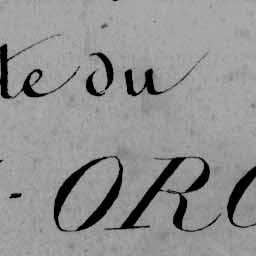 te du
-ORO